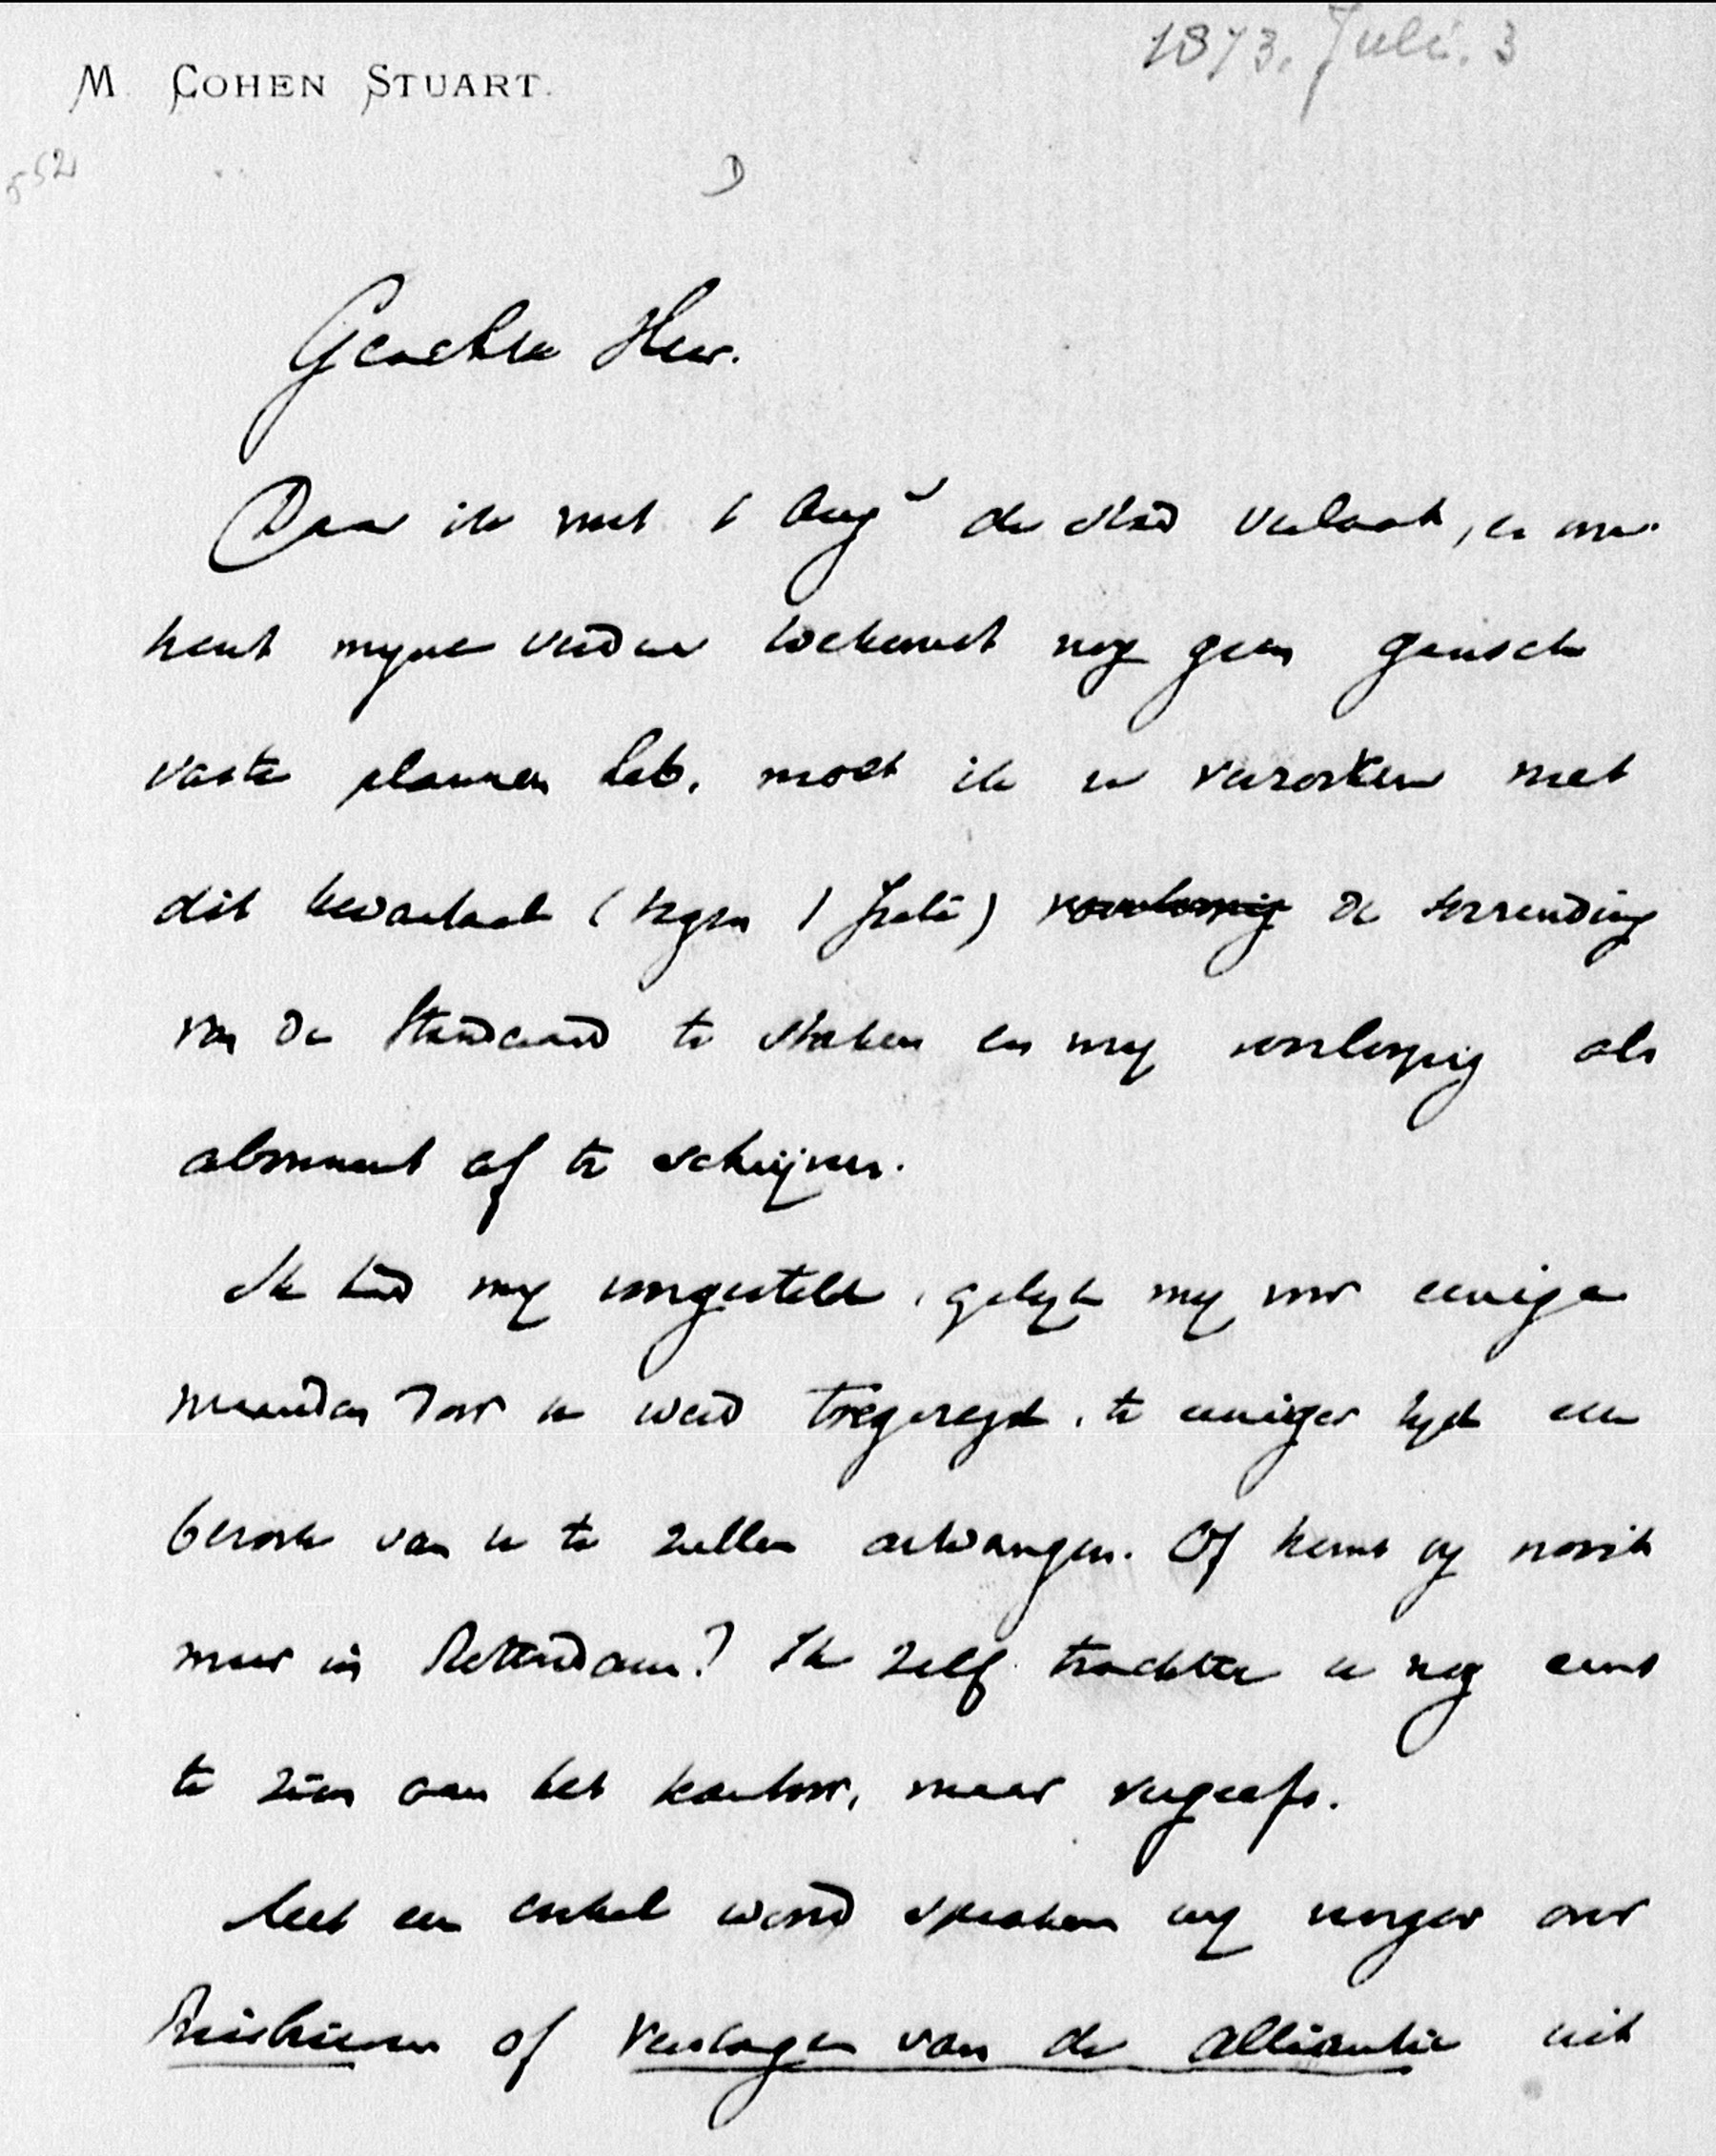 1873. Juli. 3
M. COHEN STUART.
552
D
Geachte Heer.
Daar ik met 1 Aug de stad verlaat, en om-
trent myne verdere toekomst nog geen geheele
vaste plannen heb, moet ik u verzoeken met
dit kwartaal (tegen 1 Juli) voorloopig de toezending
van de Standaard te staken en my voorloopig als
abonnent af te schryven.
Ik had my voorgesteld, gelyk my voor eenige
maanden door u werd toegezegd, te eeniger tyd een
bezoek van u te zullen ontvangen. Of komt gy nooit
meer in Rotterdam? Ik zelf trachtte u nog eens
te zien aan het kantoor, maar vergeefs.
Met een enkel woord spraken wy vroeger over
of Verslagen van de Alliantie uit